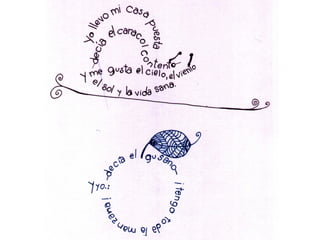 Yo llevo mi casa puesta
decía el caracol contento
y me gusta el cielo, el viento
el sol y la vida sana.
decía el gusano
¡tengo toda la manzana!
Y yo: